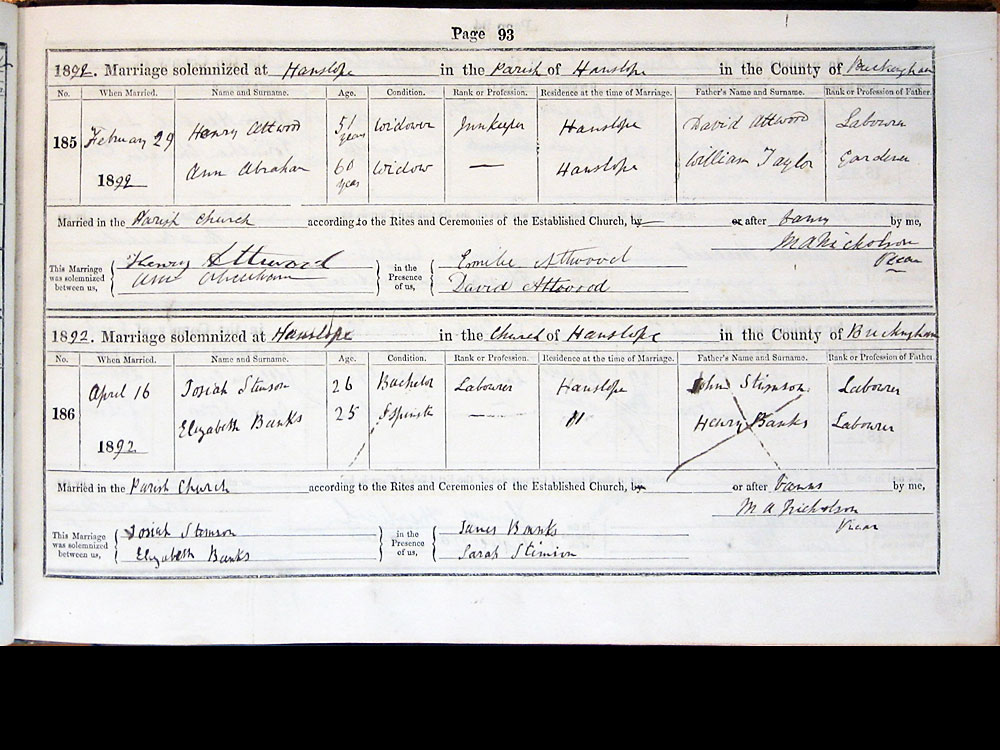 Page 93
1892. Marriage solemnized at Hanslope in the Parish of Hanslope in the County of Buckingham
No. When Married. Name and Surname. Age. Condition. Rank or Profession. Residence at the time of Marriage. Father's Name and Surname. Rank or Profession of Father.
185 February 29 Henry Attwood 51 years Widower Innkeeper Hanslope David Attwood Labourer
1892 Ann Abraham 60 years Widow — Hanslope William Taylor Gardener
Married in the Parish Church according to the Rites and Ceremonies of the Established Church, by or after banns by me,
M A Nicholson
Vicar
This Marriage was solemnized between us, Henry Attwood in the Presence of us, Emilie Attwood
Ann Abraham David Attwood
1892. Marriage solemnized at Hanslope in the Church of Hanslope in the County of Buckingham
No. When Married. Name and Surname. Age. Condition. Rank or Profession. Residence at the time of Marriage. Father's Name and Surname. Rank or Profession of Father.
186 April 16 Josiah Stimson 26 Bachelor Labourer Hanslope John Stimson Labourer
1892 Elizabeth Banks 25 Spinster — " Henry Banks Labourer
Married in the Parish Church according to the Rites and Ceremonies of the Established Church, by or after banns by me,
M A Nicholson
Vicar
This Marriage was solemnized between us, Josiah Stimson in the Presence of us, James Banks
Elizabeth Banks Sarah Stimson